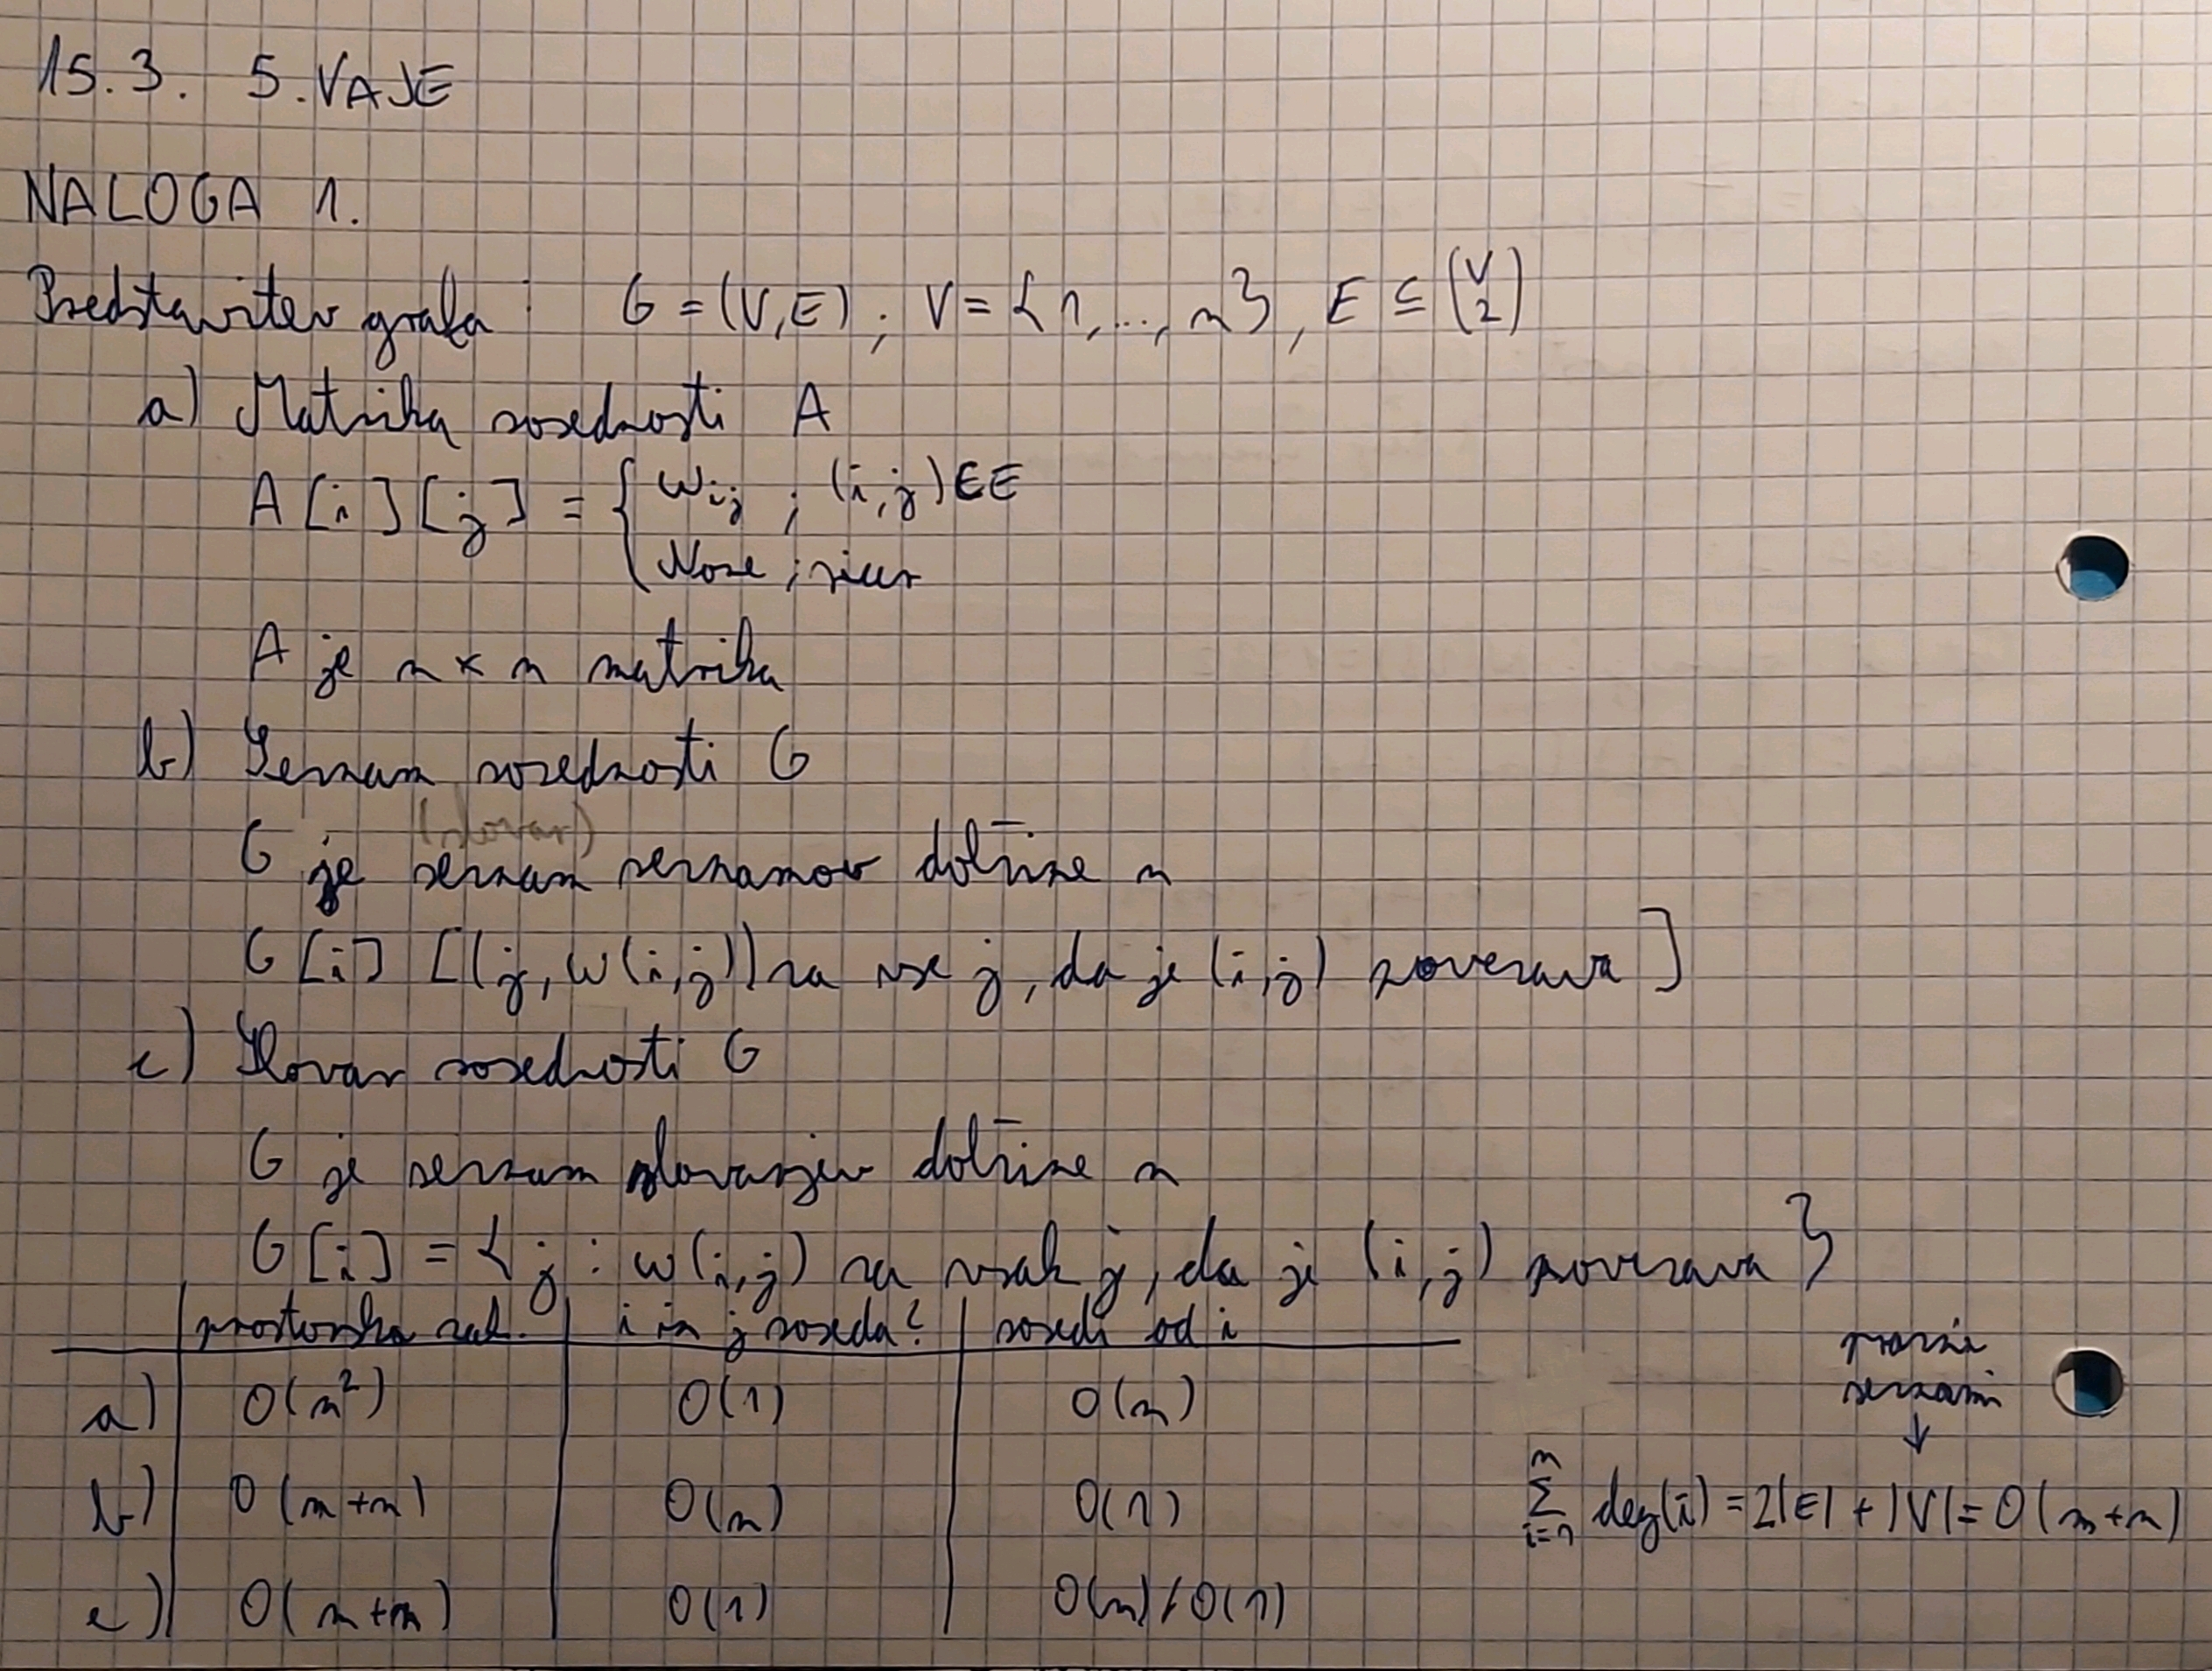 15.3. 5. VAJE
NALOGA 1.
Predstavitev grafa : G = (V,E) ; V = {1,..., n}, E ⊆ (V 2)
a) Matrika sosednosti A
A[i][j] = { w_ij ; (i,j) ∈ E
None ; sicer
A je n × n matrika
b) Seznam sosednosti G
G je seznam seznamov dolžine n
G[i] [(j, w(i,j)) za vse j, da je (i,j) povezava]
c) Slovar sosednosti G
G je seznam slovarjev dolžine n
G[i] = { j : w(i,j) za vsak j, da je (i,j) povezava }
prostorska zah. | i in j soseda? | sosedi od i
a) | O(n²) | O(1) | O(n)
b) | O(m+n) | O(n) | O(1)
c) | O(m+n) | O(1) | O(n) / O(1)
prazni
seznami
↓
∑_{i=1}^{n} deg(i) = 2|E| + |V| = O(m+n)